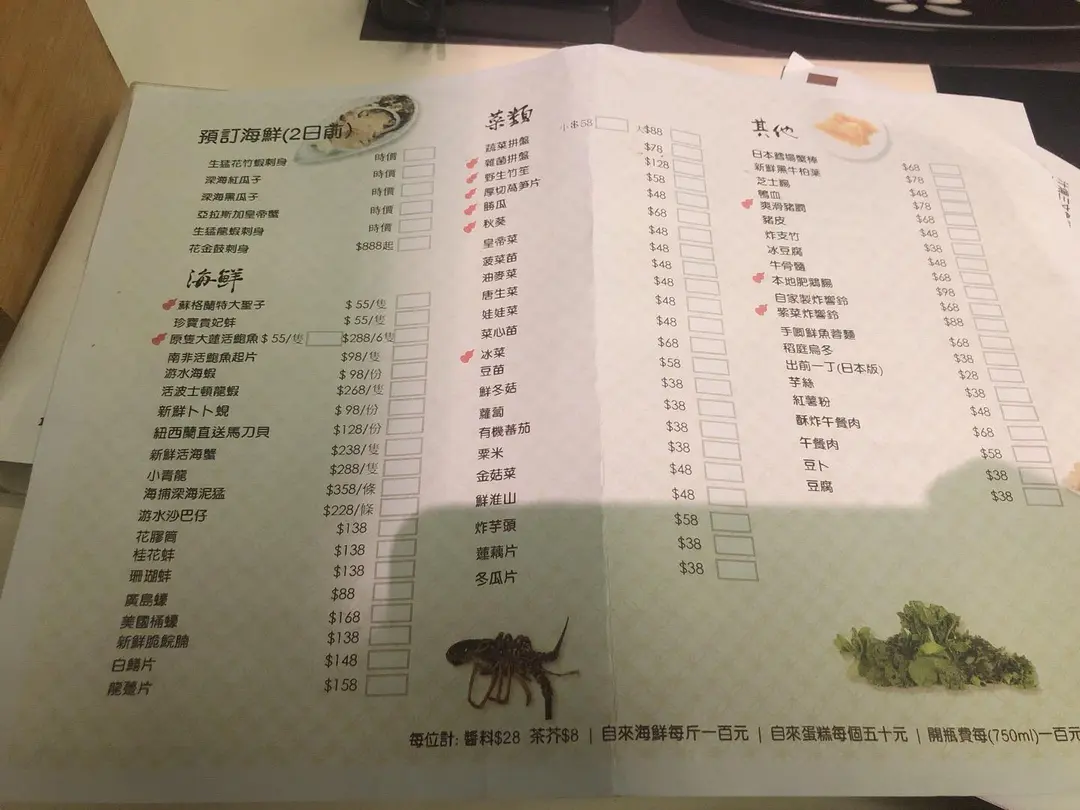 預訂海鮮(2日前)
生猛花竹蝦刺身 時價
深海紅瓜子 時價
深海黑瓜子 時價
亞拉斯加皇帝蟹 時價
生猛龍蝦刺身 時價
花金鼓刺身 $888起
海鮮
蘇格蘭特大聖子 $55/隻
珍寶貴妃蚌 $55/隻
原隻大蓮活鮑魚 $55/隻 $288/6隻
南非活鮑魚起片 $98/隻
游水海蝦 $98/份
活波士頓龍蝦 $268/隻
新鮮卜卜蜆 $98/份
紐西蘭直送馬刀貝 $128/份
新鮮活海蟹 $238/隻
小青龍 $288/隻
海捕深海泥猛 $358/條
游水沙巴仔 $228/條
花膠筒 $138
桂花蚌 $138
珊瑚蚌 $138
廣島蠔 $88
美國桶蠔 $168
新鮮脆鯇腩 $138
白鱔片 $148
龍躉片 $158
菜類
蔬菜拼盤 小$58 大$88
雜菌拼盤 $78
野生竹笙 $128
厚切萵笋片 $58
勝瓜 $48
秋葵 $68
皇帝菜 $48
菠菜苗 $48
油麥菜 $48
唐生菜 $48
娃娃菜 $48
菜心苗 $48
冰菜 $68
豆苗 $58
鮮冬菇 $38
蘿蔔 $38
有機蕃茄 $38
粟米 $38
金菇菜 $48
鮮淮山 $48
炸芋頭 $58
蓮藕片 $38
冬瓜片 $38
其他
日本鱈場蟹棒 $68
新鮮黑牛柏葉 $78
芝士腸 $48
鴨血 $78
爽滑豬膶 $68
豬皮 $48
炸支竹 $38
冰豆腐 $48
牛骨髓 $68
本地肥鵝腸 $98
自家製炸響鈴 $68
紫菜炸響鈴 $88
手唧鮮魚蓉麵 $68
稻庭烏冬 $38
出前一丁(日本版) $28
芋絲 $38
紅薯粉 $48
酥炸午餐肉 $68
午餐肉 $58
豆卜 $38
豆腐 $38
每位計: 醬料$28 茶芥$8 | 自來海鮮每斤一百元 | 自來蛋糕每個五十元 | 開瓶費每(750ml)一百元